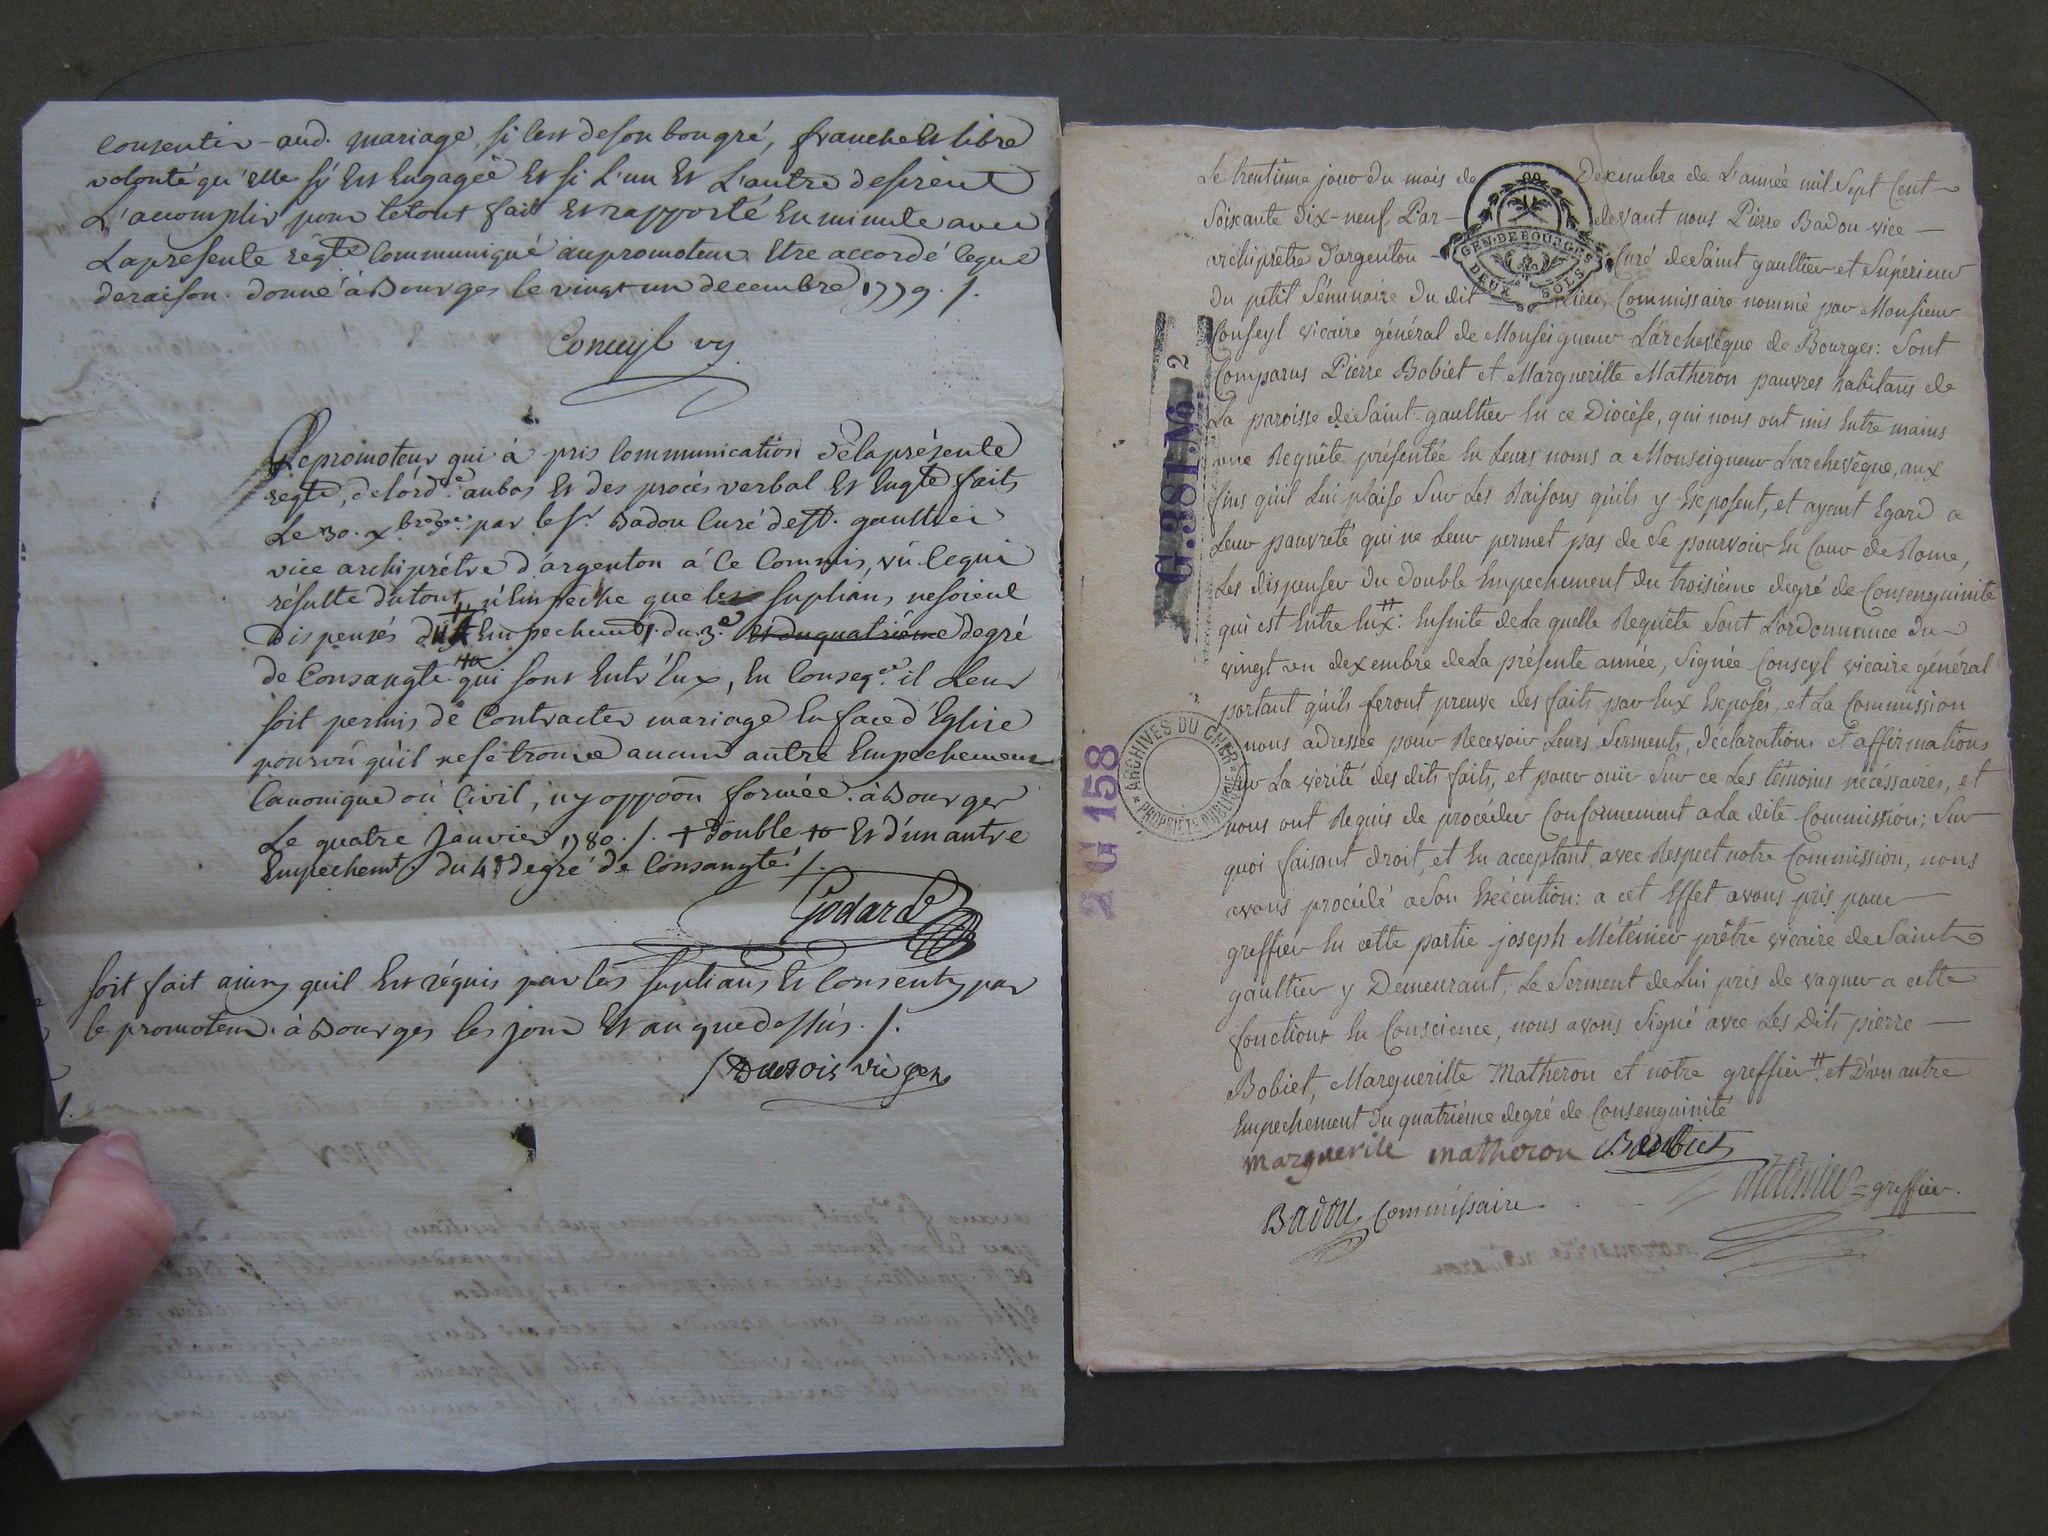 consentir aud. mariage, si c'est de son bon gré, franche et libre
volonté qu'elle s'y est engagée et si l'un et l'autre desirent
L'accomplir pour le tout fait et rapporté en minute avec
La presente reqte communiqué au promoteur. Etre accordé ceque
de raison. donné à Bourges le vingt un decembre 1779 ./.
Conseyl vg
Le promoteur qui à pris communication dé la présente
reqte, de l'ordce aubas et des procés verbal et enqte faits
Le 30. xbre par le sr. Badou Curé de st. gaultier
vice archiprétre d'argenton à ce Commis, vû cequi
résulte du tout n'Empeche que les suplians nesoient
Dispensés du Empechemt. du 3e. et du quatriéme degré
de Consangte qui sont Entr'Eux, En conseqce. il Leur
soit permis de Contracter mariage En face d'Eglise
pourvû qu'il ne se trouve aucun autre Empechement
Canonique où Civil, ny oppoõn formée. à Bourges
Le quatre Janvier 1780 ./. + double ++ Et d'un autre
Empechemt. du 4e degré de Consangté ./.
Godard
soit fait ainsy quil Est réquis par les suplians Et Consenty par
le promoteur. à Bourges les jour Et an quedessus ./.
Dubois vic gen
Le trentieme jour du mois de Dexembre de L'année mil Sept Cent
Soixante Dix-neuf Par- devant nous Pierre Badou vice-
archiprêtre D'argenton - Curé de Saint gaultier et Supérieur
Du petit Séminaire Du dit Lieu, Commissaire nommé par Monsieur
GEN. DE BOURGES
DEUX SOLS
Conseyl vicaire général de Monseigneur L'archevêque de Bourges: Sont
Comparus Pierre Bobiet et Margueritte Matheron pauvres habitans de
La paroisse de Saint-gaultier En ce Diocèse, qui nous ont mis Entre mains
une Requête présentée En Leurs noms a Monseigneur L'archevêque, aux
fins qu'il Lui plaise Sur Les Raisons qu'ils y Exposent, et ayant Egard a
Leur pauvreté qui ne Leur permet pas de se pourvoir En Cour de Rome,
Les dispenser Du Double Empechement Du troisième degré de Consenguinité
qui est Entre Eux #: Ensuite de La quelle Requête Sont L'ordonnance Du
vingt un dexembre de La présente année, Signée Conseyl vicaire général
portant qu'ils feront preuve des faits par Eux Exposés, et La Commission
nous adressée pour Recevoir Leurs Serments, déclarations et affirmations
sur La vérité des dits faits, et pour ouir Sur ce Les témoins nécéssaires, et
nous ont Requis de procéder Conformement a La dite Commission; Sur
quoi faisant droit, et En acceptant avec Respect notre Commission, nous
avons procédé a Son Exécution: a cet Effet avons pris pour
greffier En cette partie joseph Méténier prêtre vicaire de Saint
gaultier y Demeurant, Le Serment de Lui pris de vaquer a cette
fonctions En Conscience, nous avons Signé avec Les Dits pierre -
Bobiet, Margueritte Matheron et notre greffier #. et D'un autre
Empechement Du quatriéme degré de Consenguinité
marguerite matheron Baubiet
Méténier greffier.
Badou Commissaire
G.381.N6 2
2 G 158
ARCHIVES DU CHER
PROPRIÉTÉ PUBLIQUE